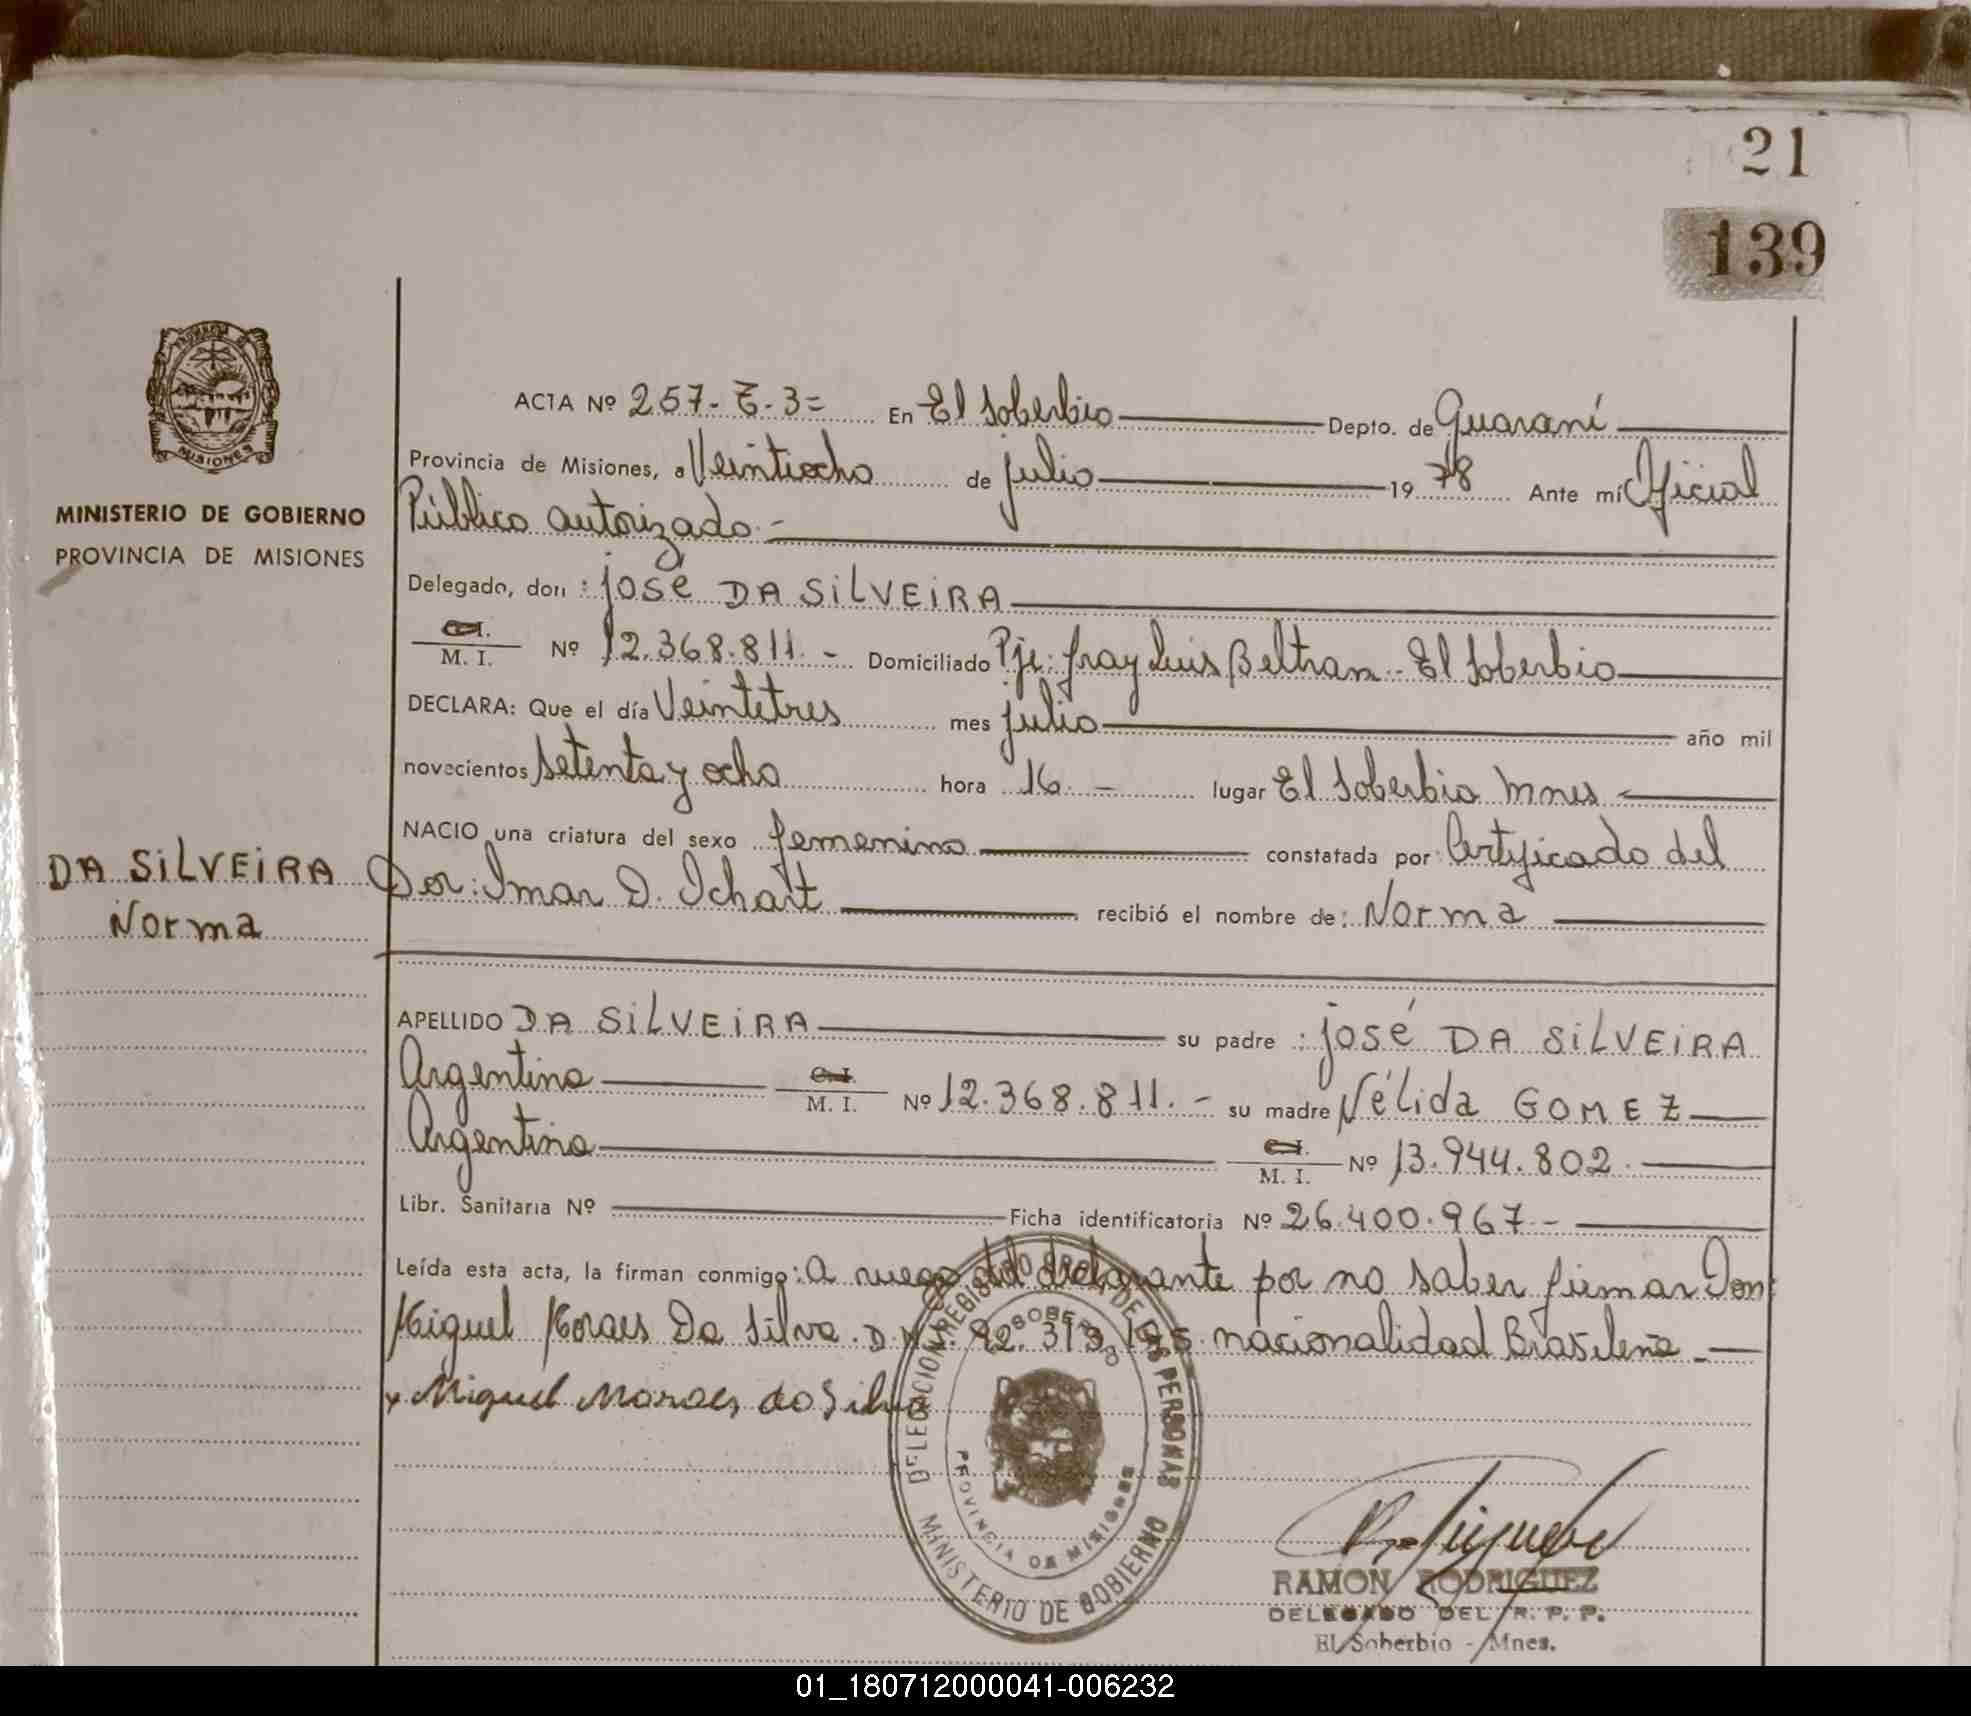 21
139
MINISTERIO DE GOBIERNO
PROVINCIA DE MISIONES
MISIONES
ACTA Nº 257-T-3= En El Soberbio Depto. de Guaraní
Provincia de Misiones, a Veintiocho de julio 19 78 Ante mí Oficial
Público autorizado.-
Delegado, don: josé DA SiLVEiRA
C.I.
M. I. Nº 12.368.811.- Domiciliado Pje: fray Luis Beltran - El Soberbio
DECLARA: Que el día Veintetres mes julio año mil
novecientos setenta y ocho hora 16.- lugar El Soberbio Mnes
NACIO una criatura del sexo femenino constatada por: Certificado del
DA SiLVEiRA
Norma
Dor: Imar D. Ichart recibió el nombre de: Norma
APELLIDO DA SiLVEiRA su padre: josé DA SiLVEiRA
Argentino C.I. M. I. Nº 12.368.811.- su madre Nélida GOMEZ
Argentina C.I. M. I. Nº 13.944.802.
Libr. Sanitaria Nº Ficha identificatoria Nº 26.400.967-
Leída esta acta, la firman conmigo: A ruego del declarante por no saber firmar Don:
Miguel Moraes Da Silva. D.N.I. 92.313.145 nacionalidad Brasileña
x Miguel Moraes da Silva
DELEGACION REGISTRO PROV. DE LAS PERSONAS
EL SOBERBIO
PROVINCIA DE MISIONES
MINISTERIO DE GOBIERNO
RAMON RODRIGUEZ
DELEGADO DEL R. P. P.
El Soberbio - Mnes.
01_180712000041-006232